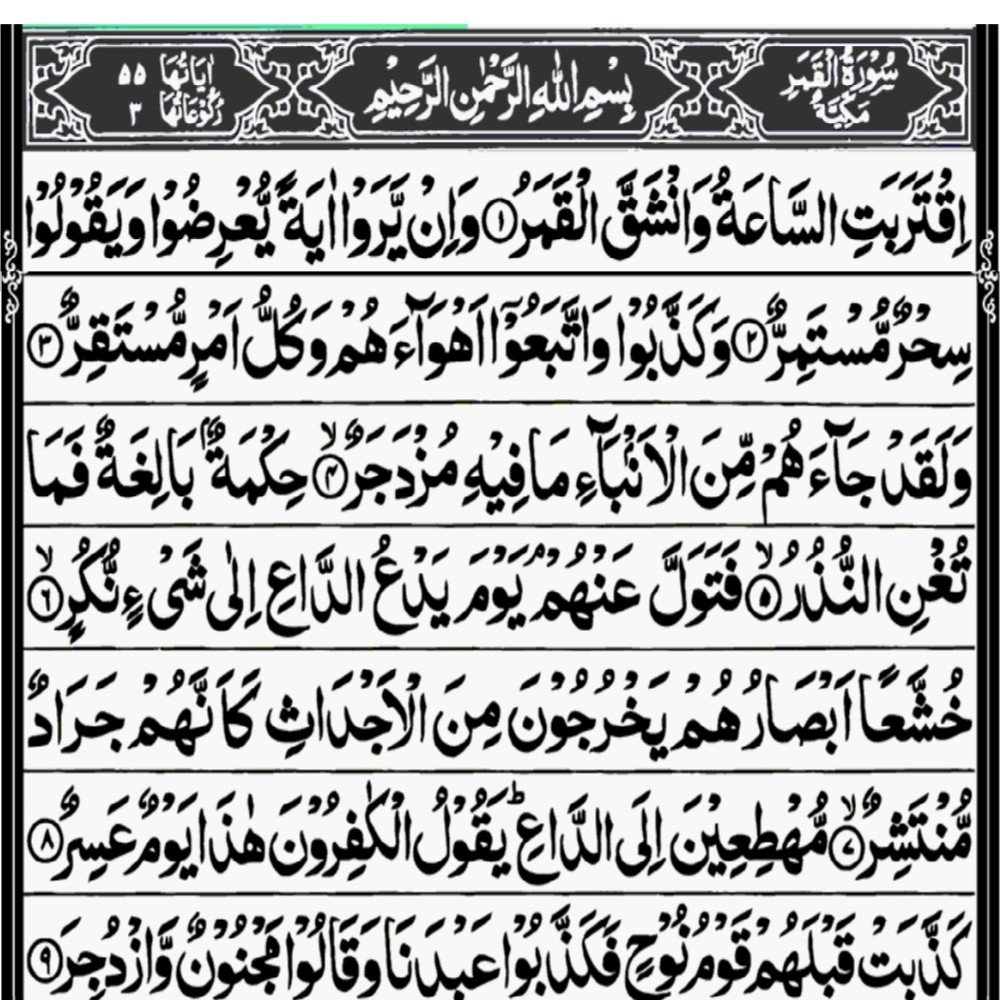 سُوۡرَةُ الۡقَمَرِ مَكِّيَّةٌ بِسۡمِ اللهِ الرَّحۡمٰنِ الرَّحِيۡمِ اٰيَاتُهَا ٥٥ رُكُوۡعَاتُهَا ٣
اِقۡتَرَبَتِ السَّاعَةُ وَانْشَقَّ الۡقَمَرُ ﴿١﴾ وَاِنۡ يَّرَوۡا اٰيَةً يُّعۡرِضُوۡا وَيَقُوۡلُوۡا
سِحۡرٌ مُّسۡتَمِرٌّ ﴿٢﴾ وَكَذَّبُوۡا وَاتَّبَعُوۡۤا اَهۡوَآءَهُمۡ وَكُلُّ اَمۡرٍ مُّسۡتَقِرٌّ ﴿٣﴾
وَلَقَدۡ جَآءَهُمۡ مِّنَ الۡاَنۡۢبَآءِ مَا فِيۡهِ مُزۡدَجَرٌ ۙ﴿٤﴾ حِكۡمَةٌ ۢ بَالِغَةٌ فَمَا
تُغۡنِ النُّذُرُ ۙ﴿٥﴾ فَتَوَلَّ عَنۡهُمۡ ۘ يَوۡمَ يَدۡعُ الدَّاعِ اِلٰى شَىۡءٍ نُّكُرٍ ۙ﴿٦﴾
خُشَّعًا اَبۡصَارُهُمۡ يَخۡرُجُوۡنَ مِنَ الۡاَجۡدَاثِ كَاَنَّهُمۡ جَرَادٌ
مُّنۡتَشِرٌ ۙ﴿٧﴾ مُّهۡطِعِيۡنَ اِلَى الدَّاعِ ؕ يَقُوۡلُ الۡكٰفِرُوۡنَ هٰذَا يَوۡمٌ عَسِرٌ ﴿٨﴾
كَذَّبَتۡ قَبۡلَهُمۡ قَوۡمُ نُوۡحٍ فَكَذَّبُوۡا عَبۡدَنَا وَقَالُوۡا مَجۡنُوۡنٌ وَّازۡدُجِرَ ﴿٩﴾